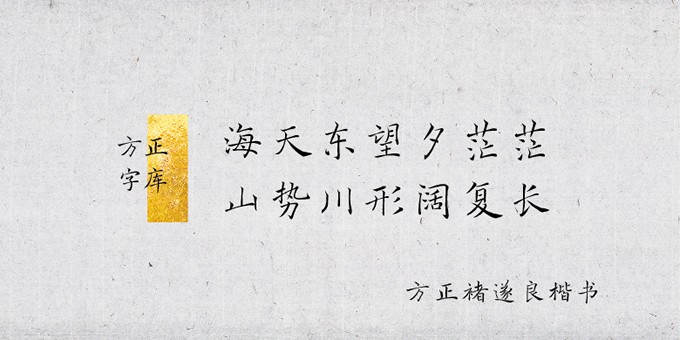 方正
字库
海天东望夕茫茫
山势川形阔复长
方正褚遂良楷书